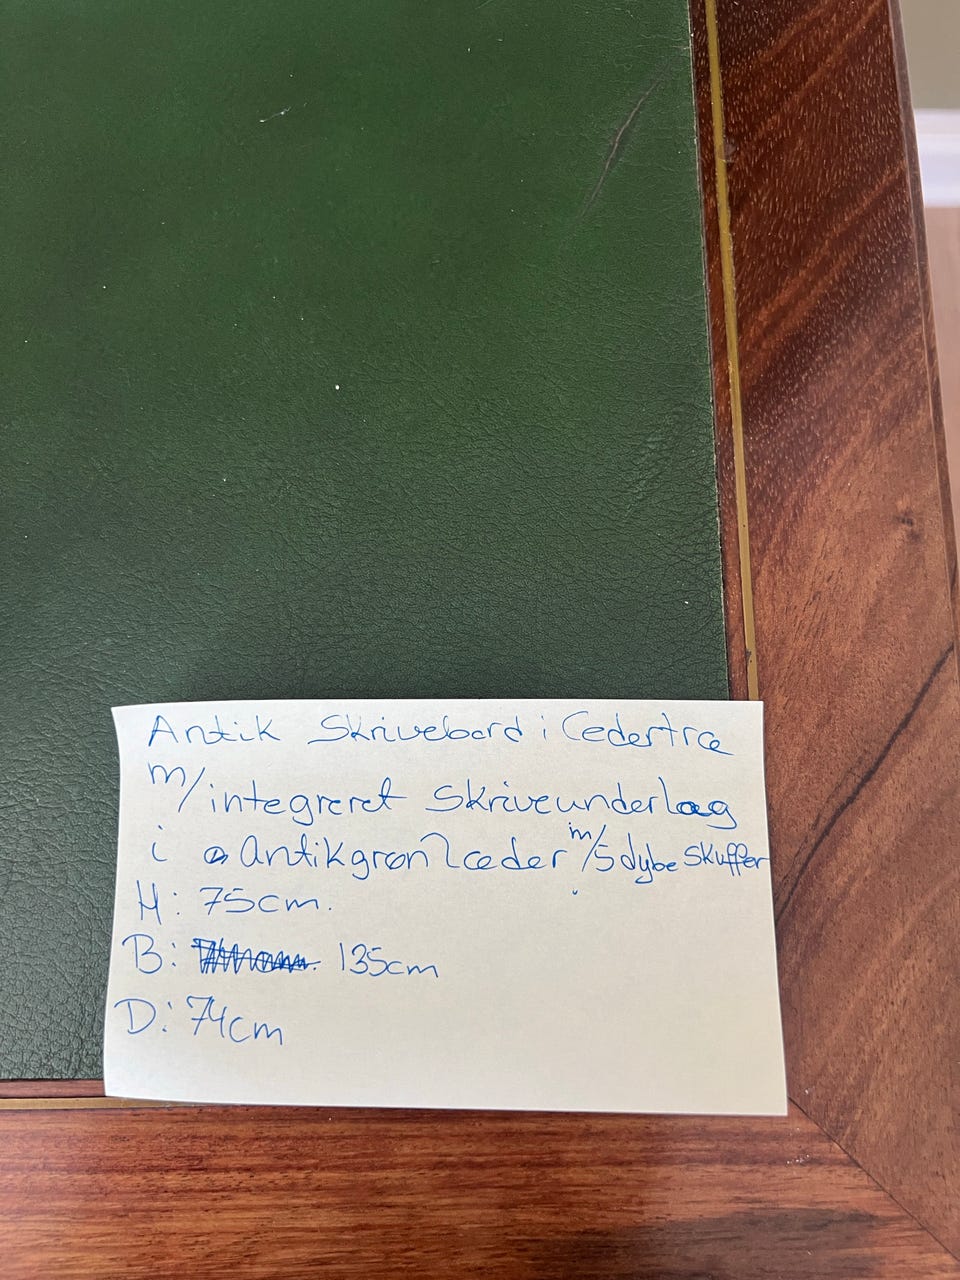 Antik Skrivebord i Cedertræ
m/integreret skriveunderlag
i Antikgrøn læder m/5 dybe skuffer
H: 75cm.
B: 135cm
D: 74cm